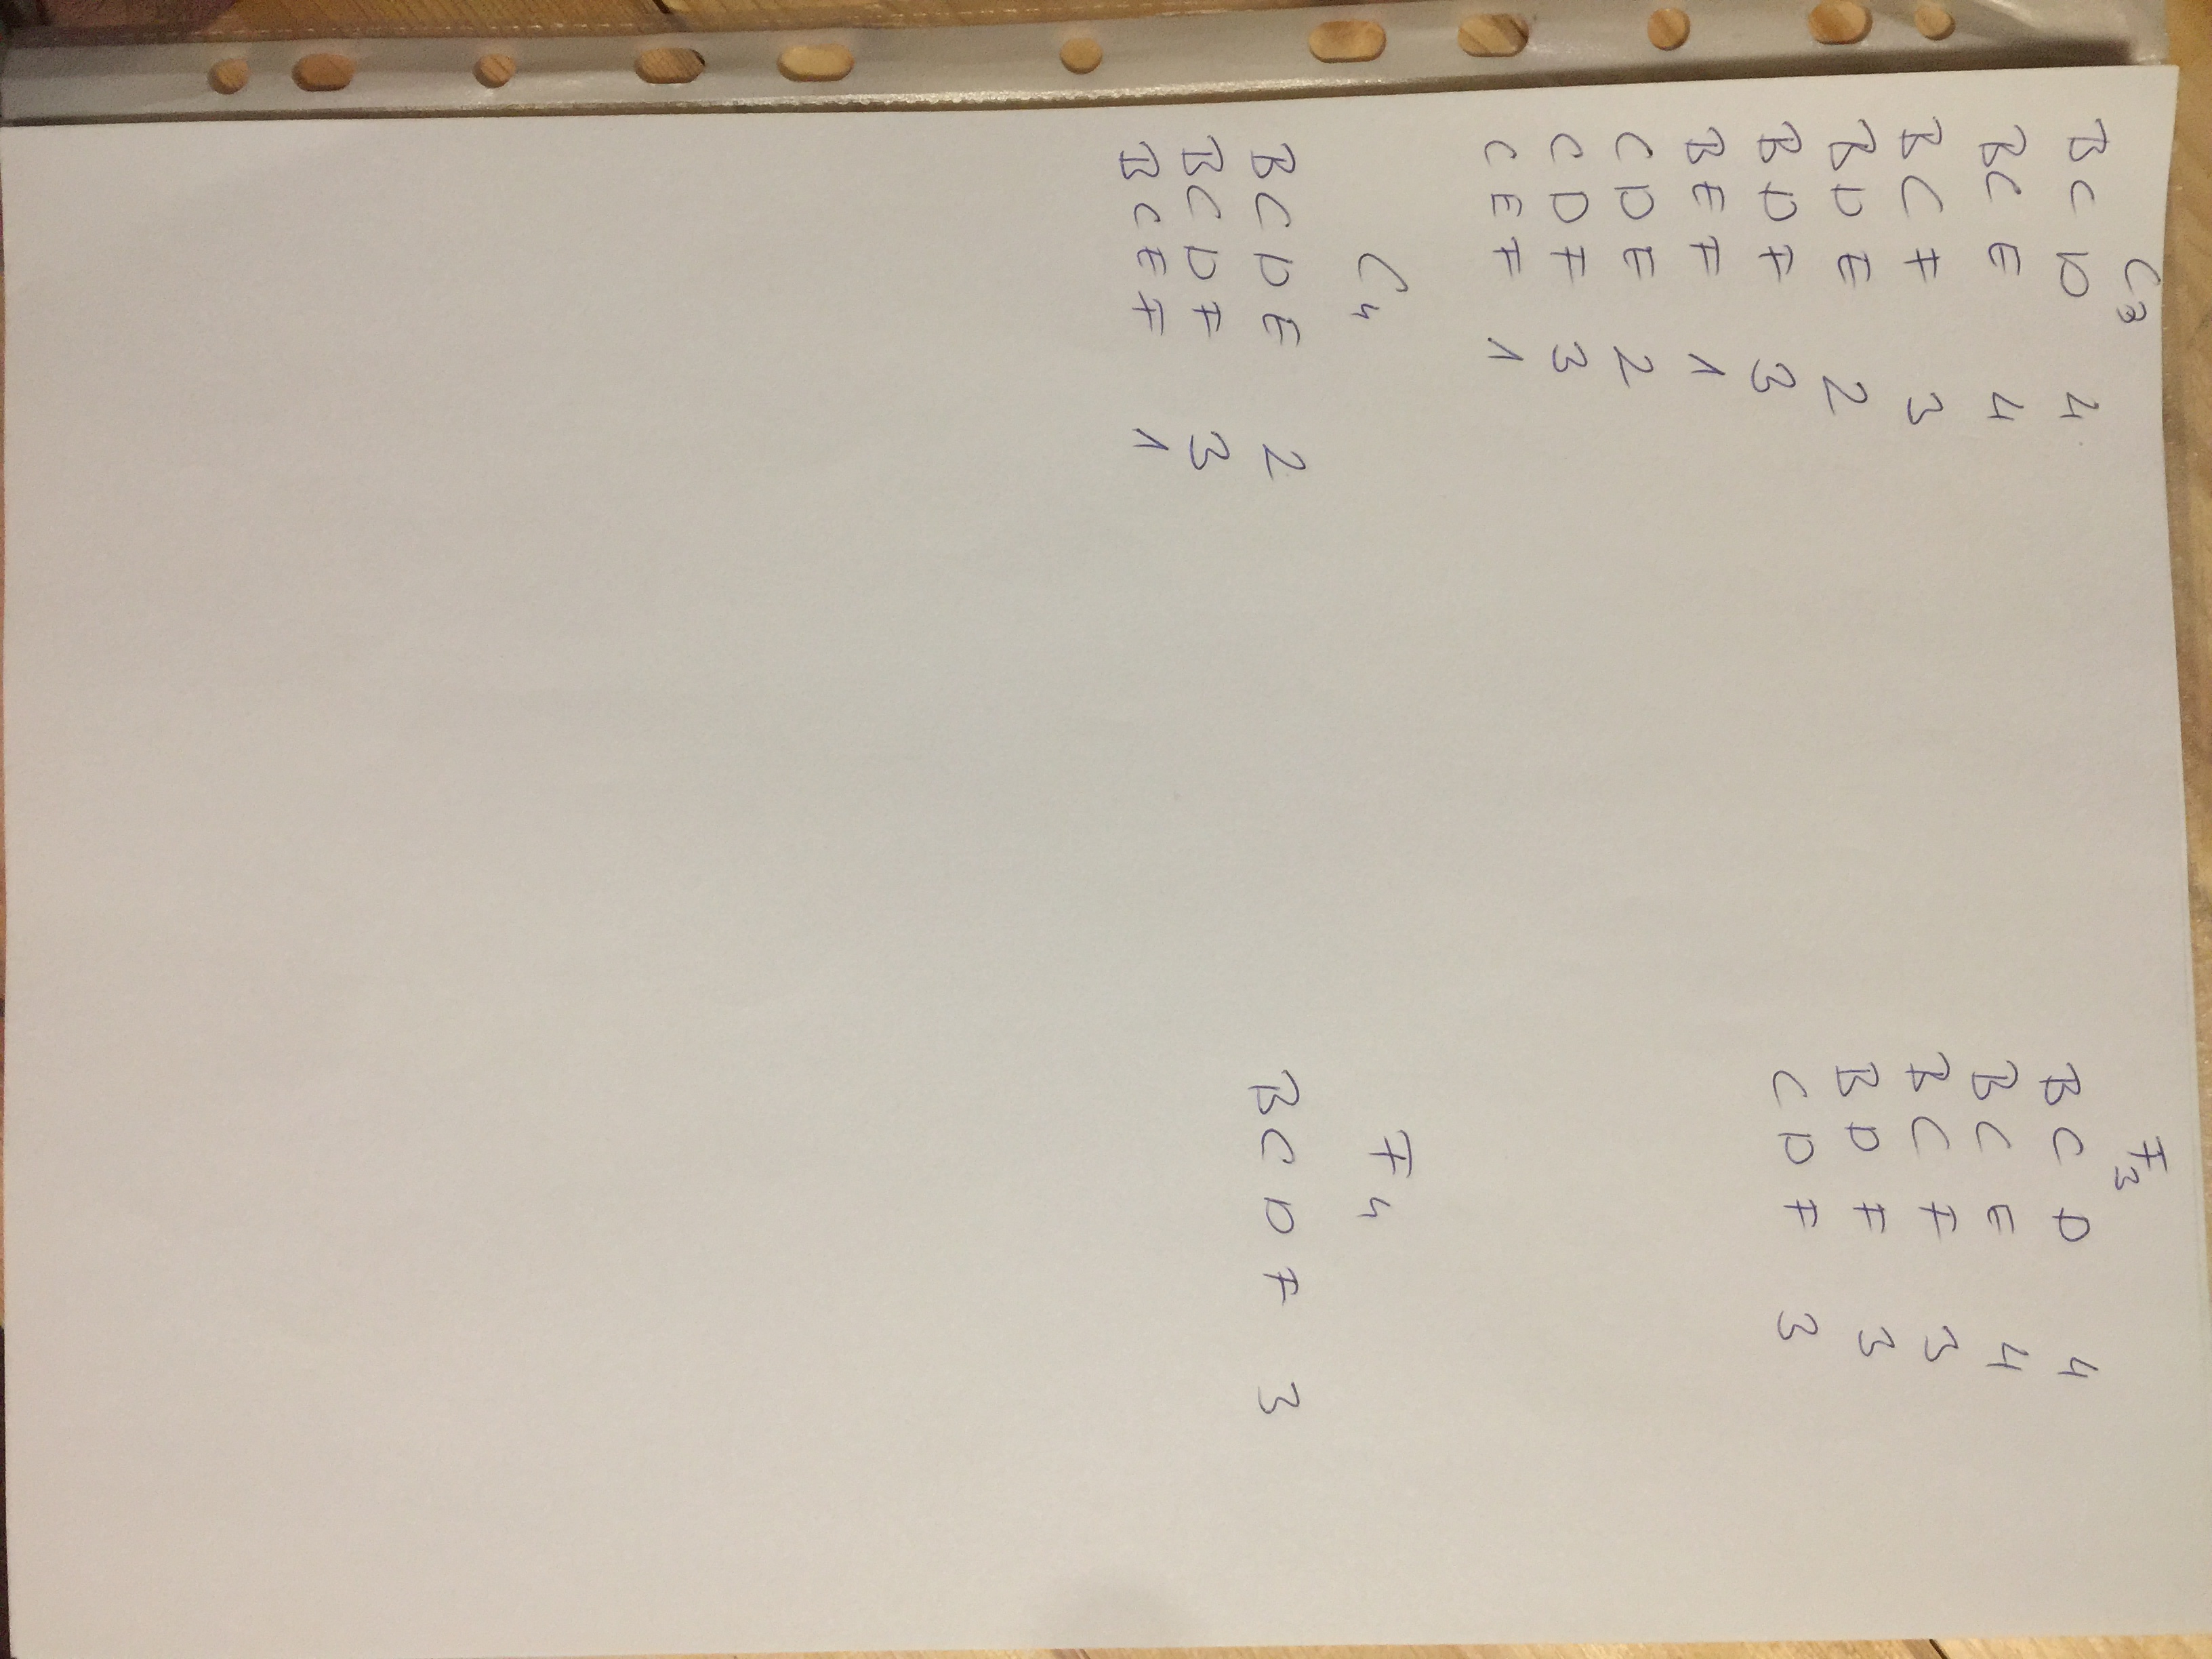 C3
B C D 4
B C E 4
B C F 3
B D E 2
B D F 3
B E F 1
C D E 2
C D F 3
C E F 1
C4
B C D E 2
B C D F 3
B C E F 1
F3
B C D 4
B C E 4
B C F 3
B D F 3
C D F 3
F4
B C D F 3